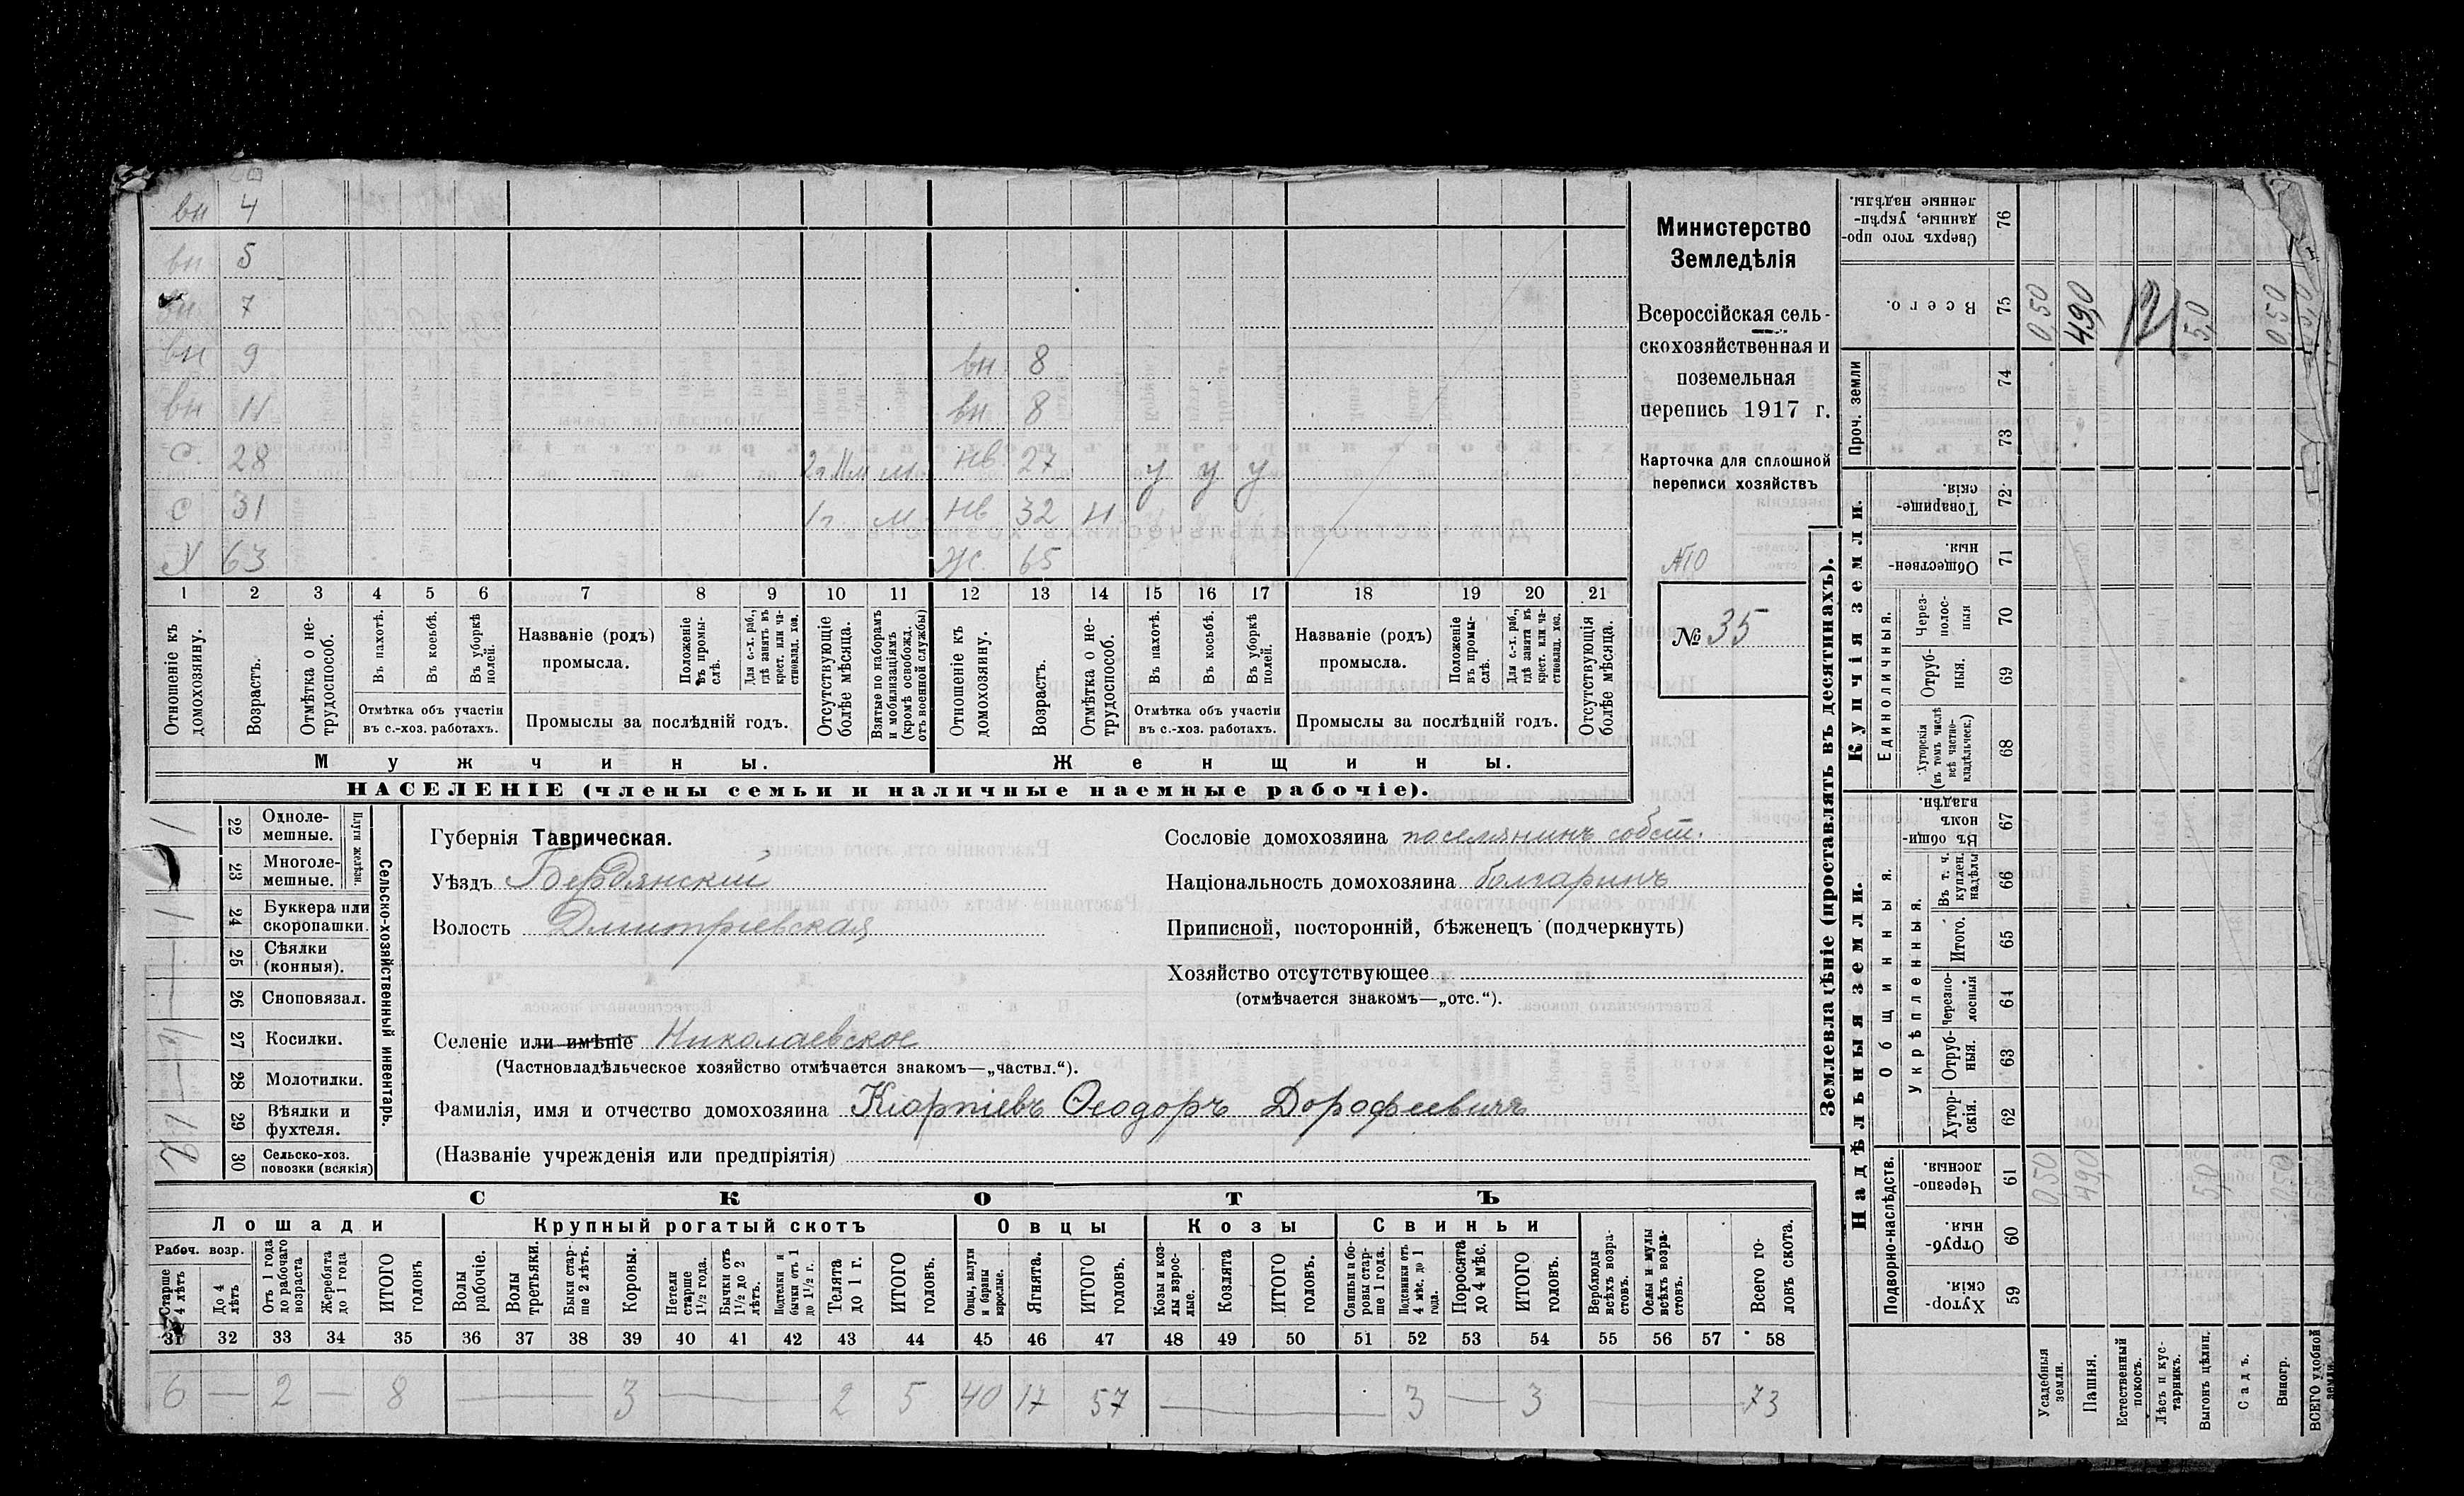 вн 4
вн 5
вн 7
вн 9 вн 8
вн 11 вн 8
С. 28 2г 11м м. нв. 27 у у у
С 31 1г м. нв 32 н
Х 63 ж. 65
1 2 3 4 5 6 7 8 9 10 11 12 13 14 15 16 17 18 19 20 21
Отношеніе къ домохозяину.
Возрастъ.
Отмѣтка о нетрудоспособ.
Въ пахотѣ.
Въ косьбѣ.
Въ уборкѣ полей.
Отмѣтка объ участіи
въ с.-хоз. работахъ.
Названіе (родъ)
промысла.
Положеніе въ промыслѣ.
Для с.-х. раб., гдѣ занятъ въ крест. или частновлад. хоз.
Промыслы за послѣдній годъ.
Отсутствующіе болѣе мѣсяца.
Взятые по наборамъ и мобилизаціямъ (кромѣ освобожд. отъ военной службы)
Отношеніе къ домохозяину.
Возрастъ.
Отмѣтка о нетрудоспособ.
Въ пахотѣ.
Въ косьбѣ.
Въ уборкѣ полей.
Отмѣтка объ участіи
въ с.-хоз. работахъ.
Названіе (родъ)
промысла.
Положеніе въ промыслѣ.
Для с.-х. раб., гдѣ занята въ крест. или частновлад. хоз.
Промыслы за послѣдній годъ.
Отсутствующія болѣе мѣсяца.
Мужчины. Женщины.
НАСЕЛЕНІЕ (члены семьи и наличные наемные рабочіе).
Министерство
Земледѣлія
Всероссійская сель-
скохозяйственная и
поземельная
перепись 1917 г.
Карточка для сплошной
переписи хозяйствъ
№ 35
Сельско-хозяйственный инвентарь.
Плуги желѣзн.
1 22 Одноле-
мешные.
23 Многоле-
мешные.
1 24 Буккера или
скоропашки.
25 Сѣялки
(конныя).
— 26 Сноповязал.
27 Косилки.
— 28 Молотилки.
1 29 Вѣялки и
фухтеля.
2 30 Сельско-хоз.
повозки (всякія)
Губернія Таврическая.
Уѣздъ Бердянскій
Волость Дмитріевская
Сословіе домохозяина поселянинъ собст.
Національность домохозяина болгаринъ
Приписной, посторонній, бѣженецъ (подчеркнуть)
Хозяйство отсутствующее
(отмѣчается знакомъ—„отс.“).
Селеніе или имѣніе Николаевское
(Частновладѣльческое хозяйство отмѣчается знакомъ—„частвл.“).
Фамилія, имя и отчество домохозяина Кюрпіевъ Ѳеодоръ Дорофеевичъ
(Названіе учрежденія или предпріятія)
СКОТЪ
Лошади Крупный рогатый скотъ Овцы Козы Свиньи
Рабоч. возр.
Старше 4 лѣтъ
До 4 лѣтъ
Отъ 1 года до рабочаго возраста
Жеребята до 1 года
ИТОГО головъ
Волы рабочіе.
Волы третьяки.
Быки старше 2 лѣтъ.
Коровы.
Нетели старше 1½ года.
Бычки отъ 1½ до 2 лѣтъ.
Подтелки и бычки отъ 1 до 1½ г.
Телята до 1 г.
ИТОГО головъ.
Овцы, валухи и бараны взрослые.
Ягнята.
ИТОГО головъ.
Козы и козлы взрослые.
Козлята
ИТОГО головъ.
Свиньи и боровы старше 1 года.
Подсвинки отъ 4 мѣс. до 1 года.
Поросята до 4 мѣс.
ИТОГО головъ.
Верблюды всѣхъ возрастовъ.
Ослы и мулы всѣхъ возрастовъ.
Всего головъ скота.
31 32 33 34 35 36 37 38 39 40 41 42 43 44 45 46 47 48 49 50 51 52 53 54 55 56 57 58
6 — 2 — 8 — 3 — 2 5 40 17 57 — 3 — 3 — 73
Землевладѣніе (проставлять въ десятинахъ).
Надѣльныя земли. Купчія земли.
Проч. земли
Сверхъ того проданные, укрѣпленные надѣлы. 76
Всего. 75 0,50 49,0 5,0 0,50
74
73
Товарищескія. 72
Общественныя. 71
Единоличныя.
Черезполосныя 70
Отрубныя. 69
Хуторскія (въ томъ числѣ всѣ частновладѣльческ.) 68
Общинныя.
Въ общинномъ владѣн. 67
Въ т. ч. куплен. надѣлы 66
Укрѣпленныя.
Итого. 65
Черезполосныя 64
Отрубныя. 63
Хуторскія. 62
Подворно-наслѣдств.
Черезполосныя. 61 0,50 49,0 5,0 0,50
Отрубныя. 60
Хуторскія. 59
Усадебныя земли.
Пашня.
Естественный покосъ.
Лѣсъ и кустарникъ.
Выгонъ цѣлин.
Садъ.
Виногр.
ВСЕГО удобной земли.